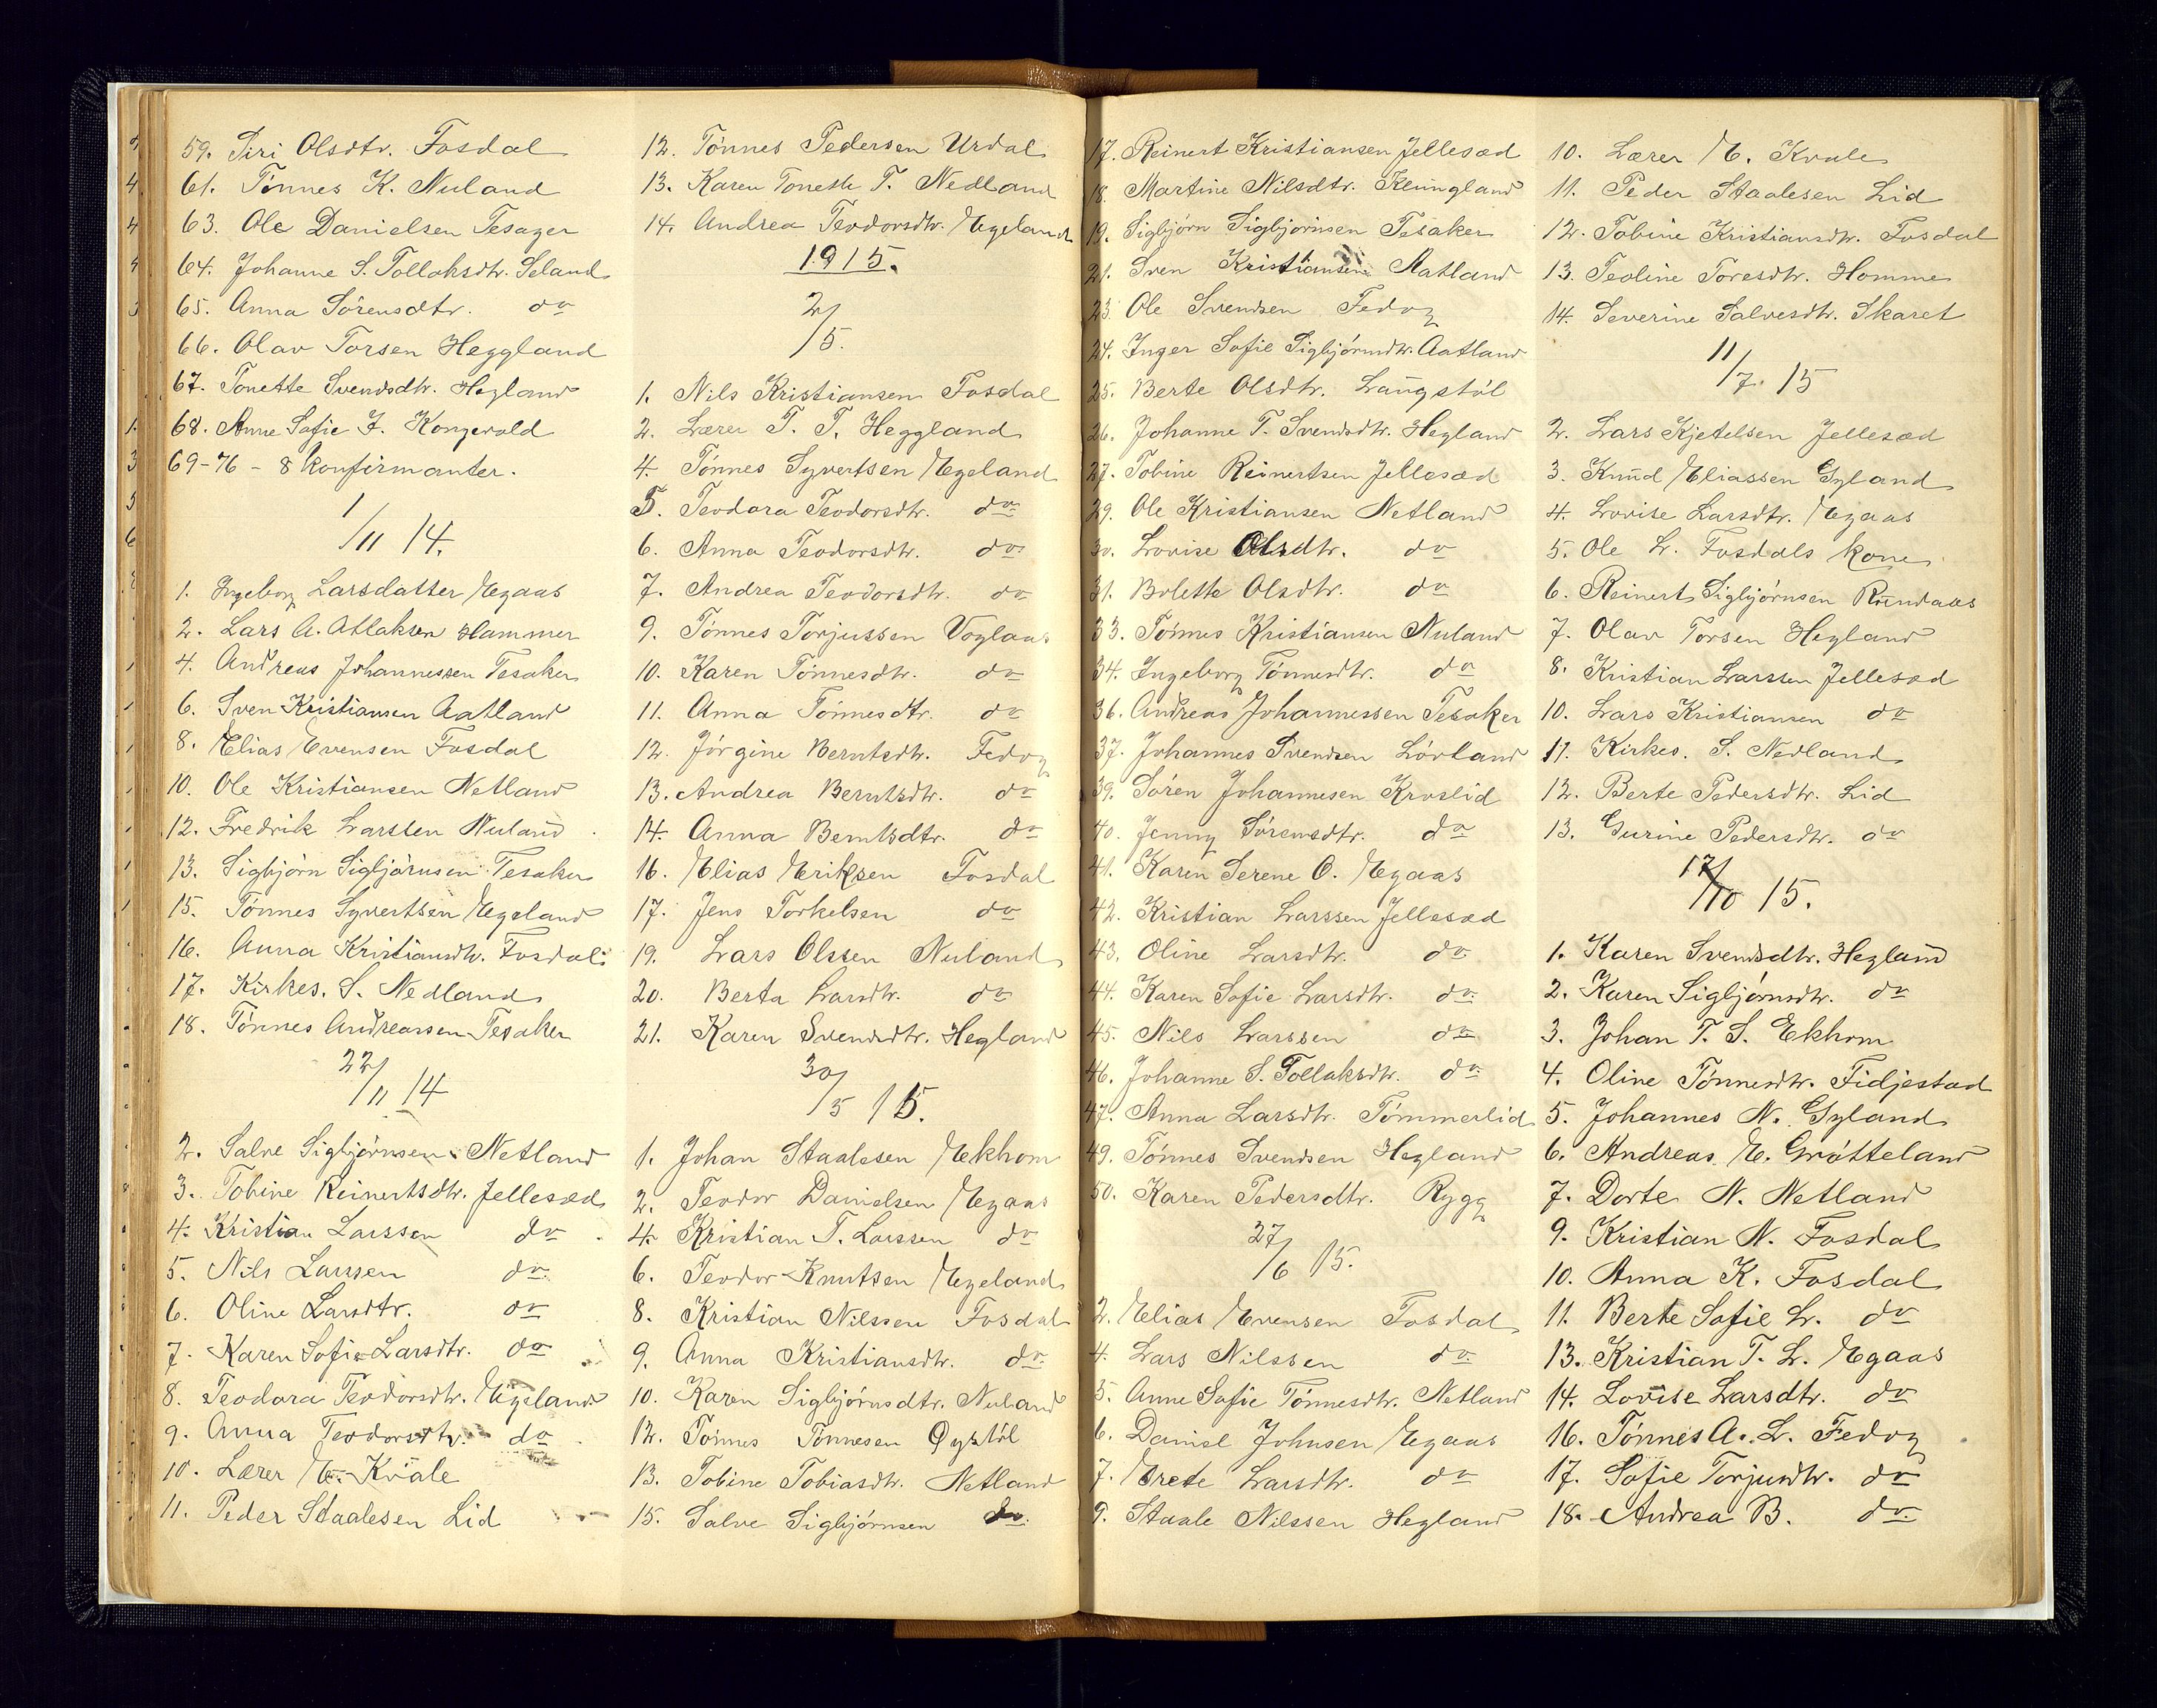 59. Siri Olsdtr. Fosdal
61. Tönnes K. Nuland
63. Ole Danielsen Tesager
64. Johanne S. Tollaksdtr. Seland
65. Anna Sörensdtr. do
66. Olav Torsen Heggland
67. Tonette Svendsdtr. Hegland
68. Anne Sofie J. Kongevold
69-76 - 8 konfirmanter.
1/11 14.
1. Ingeborg Larsdatter Egaas
2. Lars A. Atlaksen Hammer
4. Andreas Johannessen Tesaker
6. Sven Kristiansen Aatland
8. Elias Evensen Fosdal
10. Ole Kristiansen Netland
12. Fredrik Larssen Nuland
13. Sigbjörn Sigbjörnsen Tesaker
15. Tönnes Syvertsen Egeland
16. Anna Kristiansdtr. Fosdal
17. Kirkes. S. Nedland
18. Tönnes Andreassen Tesaker
22/11 14
2. Salve Sigbjörnsen Netland
3. Tobine Reinertsdtr. Jellesæd
4. Kristian Larssen do
5. Nils Larssen do
6. Oline Larsdtr. do
7. Karen Sofie Larsdtr. do
8. Teodora Teodorsdtr. Egeland
9. Anna Teodorsdtr. do
10. Lærer E. Kvale
11. Peder Staalesen Lid
12. Tönnes Pedersen Urdal
13. Karen Tonette T. Nedland
14. Andrea Teodorsdtr. Egeland
1915.
2/5.
1. Nils Kristiansen Fosdal
2. Lærer T. T. Heggland
4. Tönnes Syvertsen Egeland
5. Teodora Teodorsdtr. do
6. Anna Teodorsdtr. do
7. Andrea Teodorsdtr. do
9. Tönnes Torjussen Voglaas
10. Karen Tönnesdtr. do
11. Anna Tönnesdtr. do
12. Jörgine Berntsdtr. Fedog
13. Andrea Berntsdtr. do
14. Anna Berntsdtr. do
16. Elias Eriksen Fosdal
17. Jens Torkelsen do
19. Lars Olssen Nuland
20. Berta Larsdtr. do
21. Karen Svendsdtr. Hegland
30/5 15.
1. Johan Staalesen Ekhom
2. Teodor Danielsen Egaas
4. Kristian T. Larssen do
6. Teodor Knutsen Egeland
8. Kristian Nilssen Fosdal
9. Anna Kristiansdtr. do
10. Karen Sigbjörnsdtr. Nuland
12. Tönnes Tönnesen Öystöl
13. Tobine Tobiasdtr. Netland
15. Salve Sigbjörnsen do.
17. Reinert Kristiansen Jellesæd
18. Martine Nilsdtr. Klungland
19. Sigbjörn Sigbjörnsen Tesaker
21. Sven Kristiansen Aatland
23. Ole Svendsen Fedog
24. Inger Sofie Sigbjörnsdtr. Aatland
25. Berte Olsdtr. Langstöl
26. Johanne T. Svendsdtr. Hegland
27. Tobine Reinertsen Jellesæd
29. Ole Kristiansen Netland
30. Lovise Olsdtr. do
31. Bolette Olsdtr. do
33. Tönnes Kristiansen Nuland
34. Ingeborg Tönnesdtr. do
36. Andreas Johannessen Tesaker
37. Johannes Svendsen Lövland
39. Sören Johannesen Kroslid
40. Jenny Sörensdtr. do
41. Karen Serene O. Egaas
42. Kristian Larssen Jellesæd
43. Oline Larsdtr. do
44. Karen Sofie Larsdtr. do
45. Nils Larssen do
46. Johanne S. Tollaksdtr. do
47. Anna Larsdtr. Tömmerlid
49. Tönnes Svendsen Hegland
50. Karen Pedersdtr. Rygg
27/6 15.
2. Elias Evensen Fosdal
4. Lars Nilssen do
5. Anne Sofie Tönnesdtr. Netland
6. Daniel Johnsen Egaas
7. Grete Larsdtr. do
9. Staale Nilssen Hegland
10. Lærer E. Kvale
11. Peder Staalesen Lid
12. Tobine Kristiansdtr. Fosdal
13. Teoline Toresdtr. Homme
14. Severine Salvesdtr. Skaret
11/7. 15
2. Lars Kjetelsen Jellesæd
3. Knud Eliassen Gyland
4. Lovise Larsdtr. Egaas
5. Ole L. Fosdals kone
6. Reinert Sigbjörnsen Rundaas
7. Olav Torsen Hegland
8. Kristian Larssen Jellesæd
10. Lars Kristiansen do
11. Kirkes. S. Nedland
12. Berte Pedersdtr. Lid
13. Gurine Pedersdtr. do
17/10 15.
1. Karen Svendsdtr. Hegland
2. Karen Sigbjörnsdtr. do
3. Johan T. S. Ekhom
4. Oline Tönnesdtr. Fidjestad
5. Johannes N. Gyland
6. Andreas E. Gråtteland
7. Dorte N. Netland
9. Kristian N. Fosdal
10. Anna K. Fosdal
11. Berte Sofie L. do
13. Kristian T. L. Egaas
14. Lovise Larsdtr. do
16. Tönnes A. L. Fedog
17. Sofie Torjusdtr. do
18. Andrea B. do